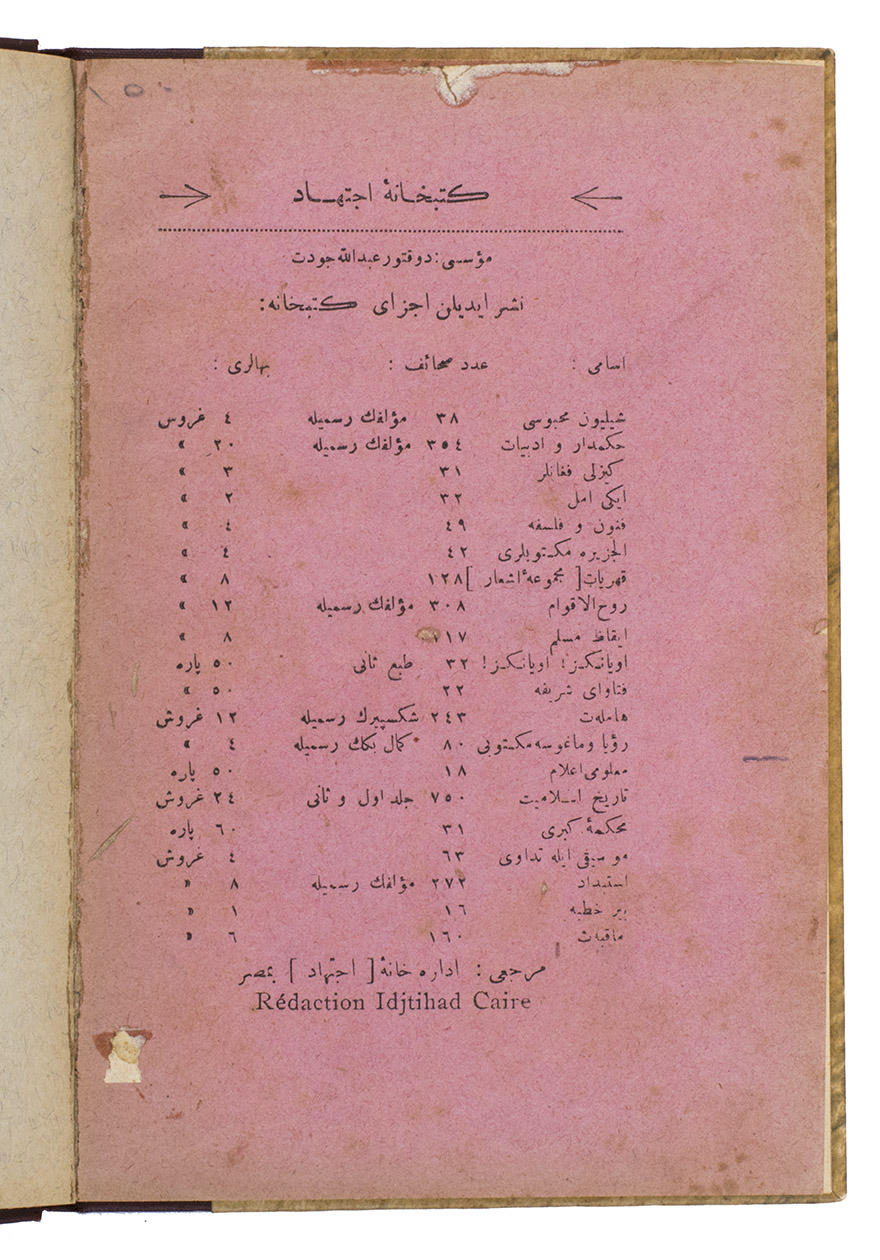 ١٥٠
كتبخانۀ اجتهاد
مؤسسی : دوقتور عبدالله جودت
نشر ایدیلن اجزای كتبخانه :
اسامی : عدد صحائف : بهالری :
شیلیون محبوسی ٣٨ مؤلفك رسمیله ٤ غروش
حكمدار و ادبیات ٣٥٤ مؤلفك رسمیله ٢٠ »
كیزلی فغانلر ٣١ ٣ »
ایكی امل ٣٢ ٢ »
فنون و فلسفه ٤٩ ٤ »
الجزیره مكتوبلری ٤٢ ٤ »
قهریات [ مجموعۀ اشعار ] ١٢٨ ٨ »
روح الاقوام ٣٠٨ مؤلفك رسمیله ١٢ »
ایقاظ مسلم ١١٧ ٨ »
اویانكز ! اویانكز ! ٣٢ طبع ثانی ٥٠ پاره
فتاوای شریفه ٢٢ ٥٠ »
هاملهت ٢٤٣ شكسپیرك رسمیله ١٢ غروش
رؤیا وماغوسه مكتوبی ٨٠ كمال بكك رسمیله ٤ »
معلومی اعلام ١٨ ٥٠ پاره
تاریخ اسلامیت ٧٥٠ جلد اول و ثانی ٢٤ غروش
محكمۀ كبری ٣١ ٦٠ پاره
موسیقی ایله تداوی ٦٣ ٤ غروش
استبداد ٢٧٢ مؤلفك رسمیله ٨ »
بر خطبه ١٦ ١ »
ماقبهث ١٦٠ ٦ »
مرجعی : اداره خانۀ [ اجتهاد ] بمصر
Rédaction Idjtihad Caire